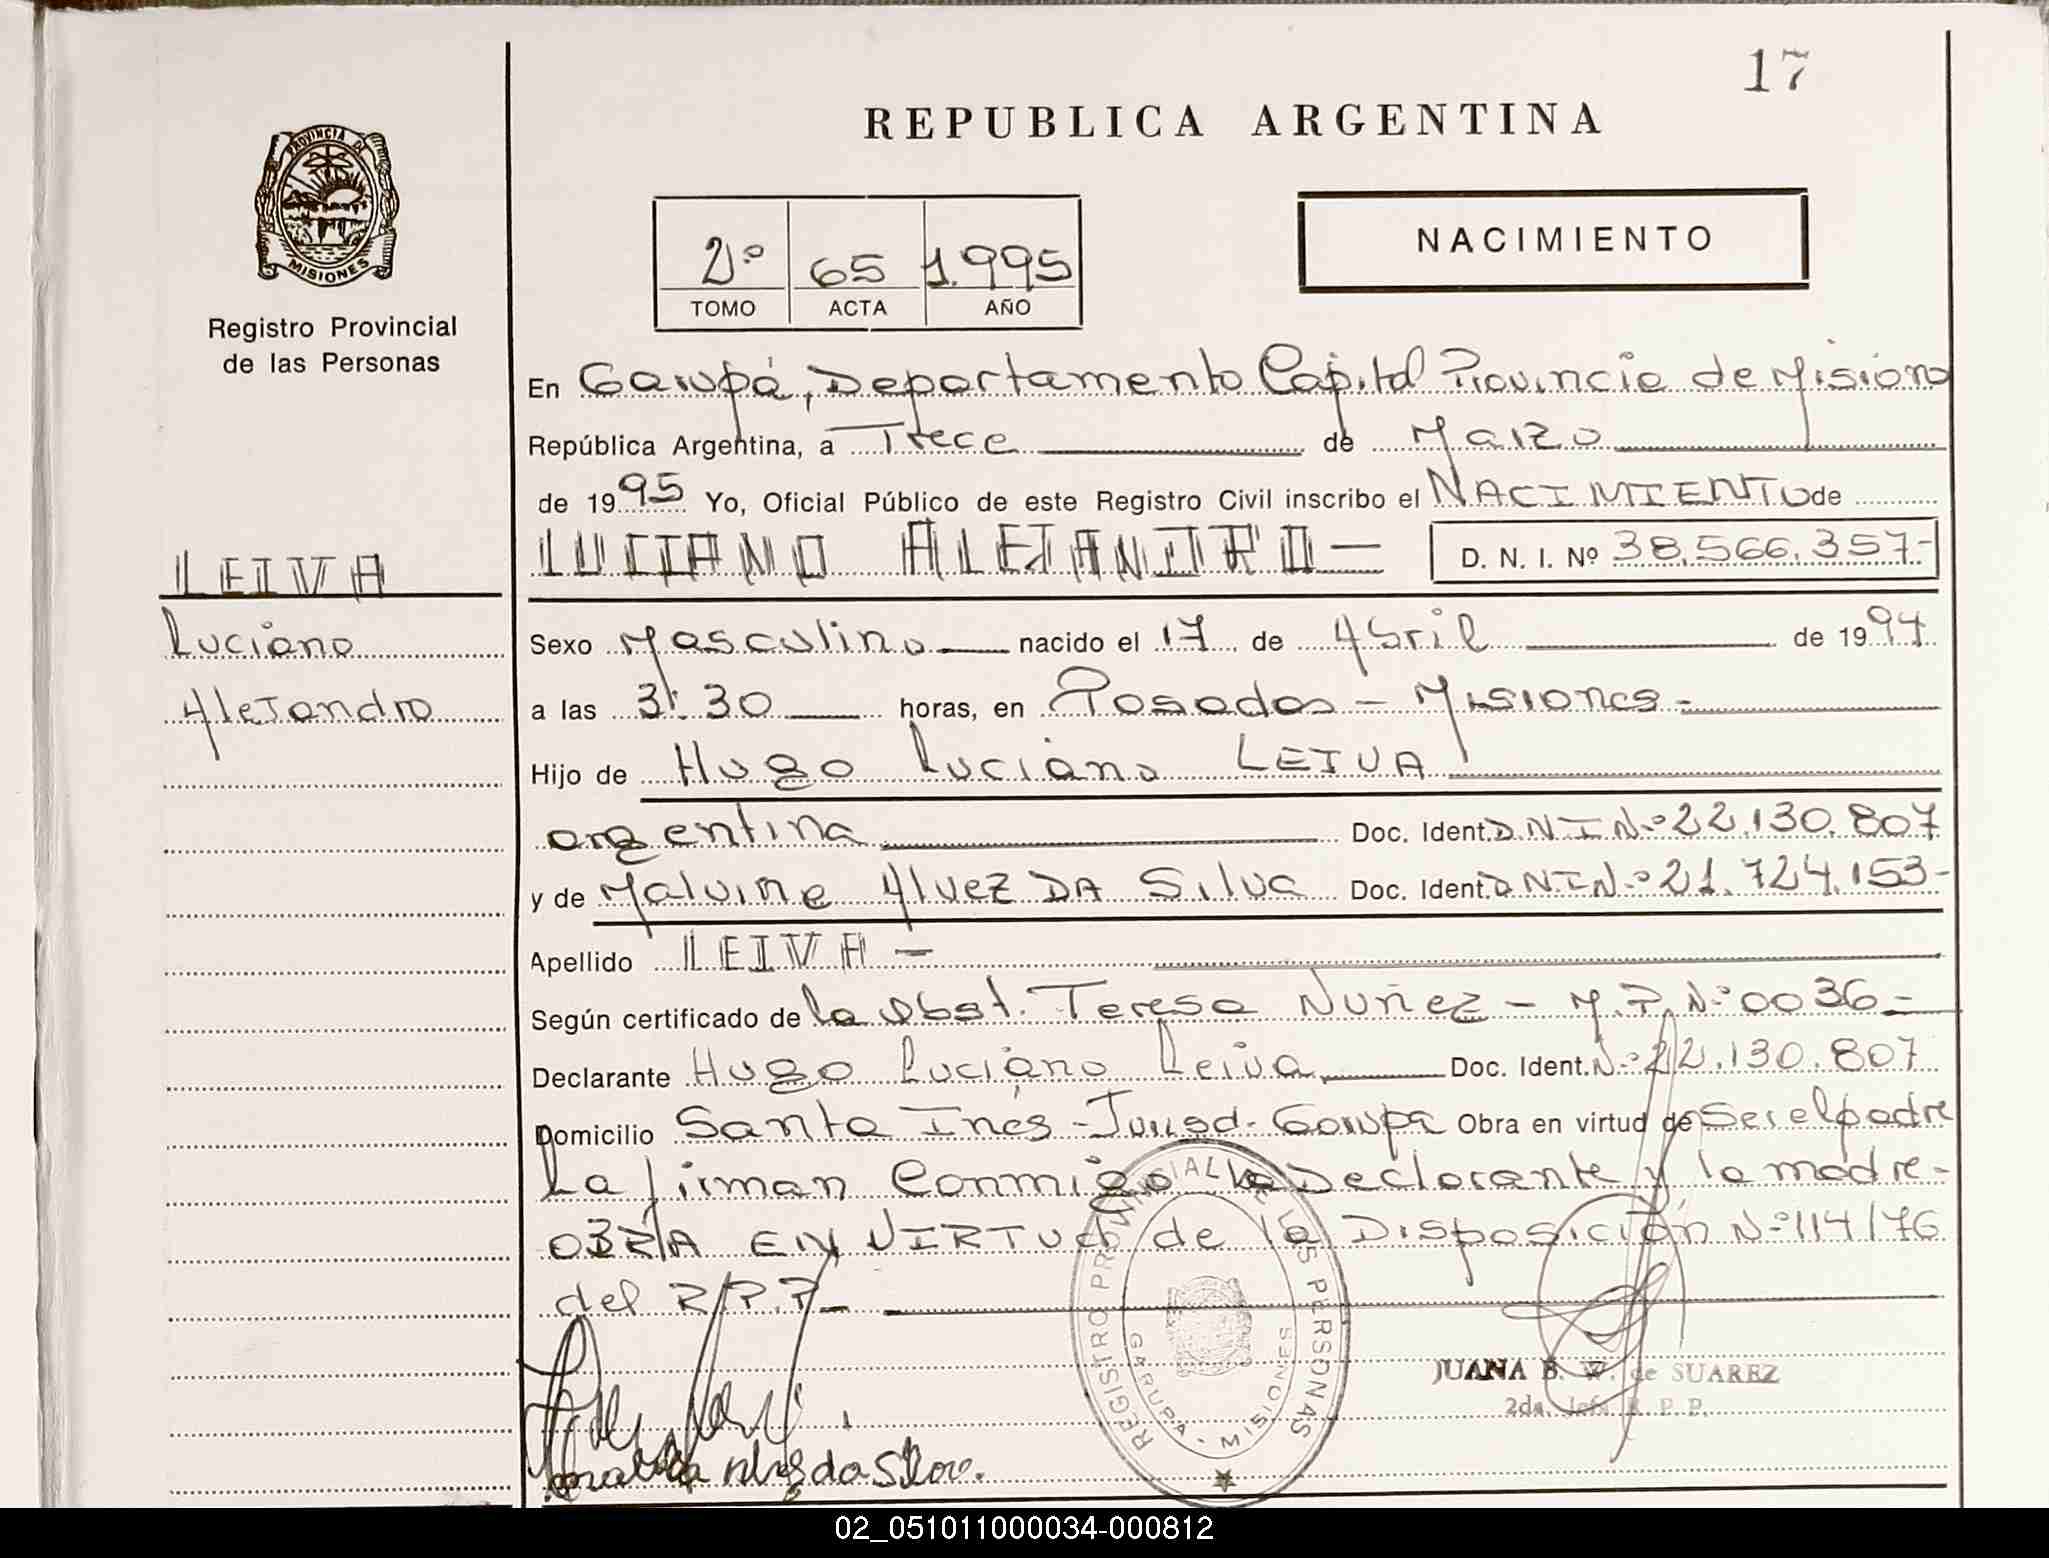 17
REPUBLICA ARGENTINA
PROVINCIA DE
MISIONES
Registro Provincial
de las Personas
2º 65 1.995
TOMO ACTA AÑO
NACIMIENTO
En Garupá, Departamento Capital Provincia de Mision
República Argentina, a Trece de Marzo
de 1995 Yo, Oficial Público de este Registro Civil inscribo el NACIMIENTO de
LUCIANO ALEJANDRO — D. N. I. Nº 38.566.357-
LEIVA
Luciano
Alejandro
Sexo Masculino nacido el 17 de Abril de 1994
a las 3:30 horas, en Posadas - Misiones -
Hijo de Hugo Luciano LEIVA
argentina Doc. Ident. D.N.I.Nº 22.130.807
y de Malvine Alvez DA Silva Doc. Ident. D.N.I.Nº 21.724.153-
Apellido LEIVA -
Según certificado de la Obst. Teresa Nuñez - M.P. Nº 0036 -
Declarante Hugo Luciano Leiva Doc. Ident. Nº 22.130.807
Domicilio Santa Inés - Jurisd. Garupá Obra en virtud de Ser el padre
La firman Conmigo la Declarante y la madre -
OBRA EN VIRTUD de la Disposición Nº 114/76
del R.P.P -
REGISTRO PROVINCIAL DE LAS PERSONAS
GARUPA - MISIONES
JUANA B. W. de SUAREZ
2da. Jefa R. P. P.
da Silva.
02_051011000034-000812